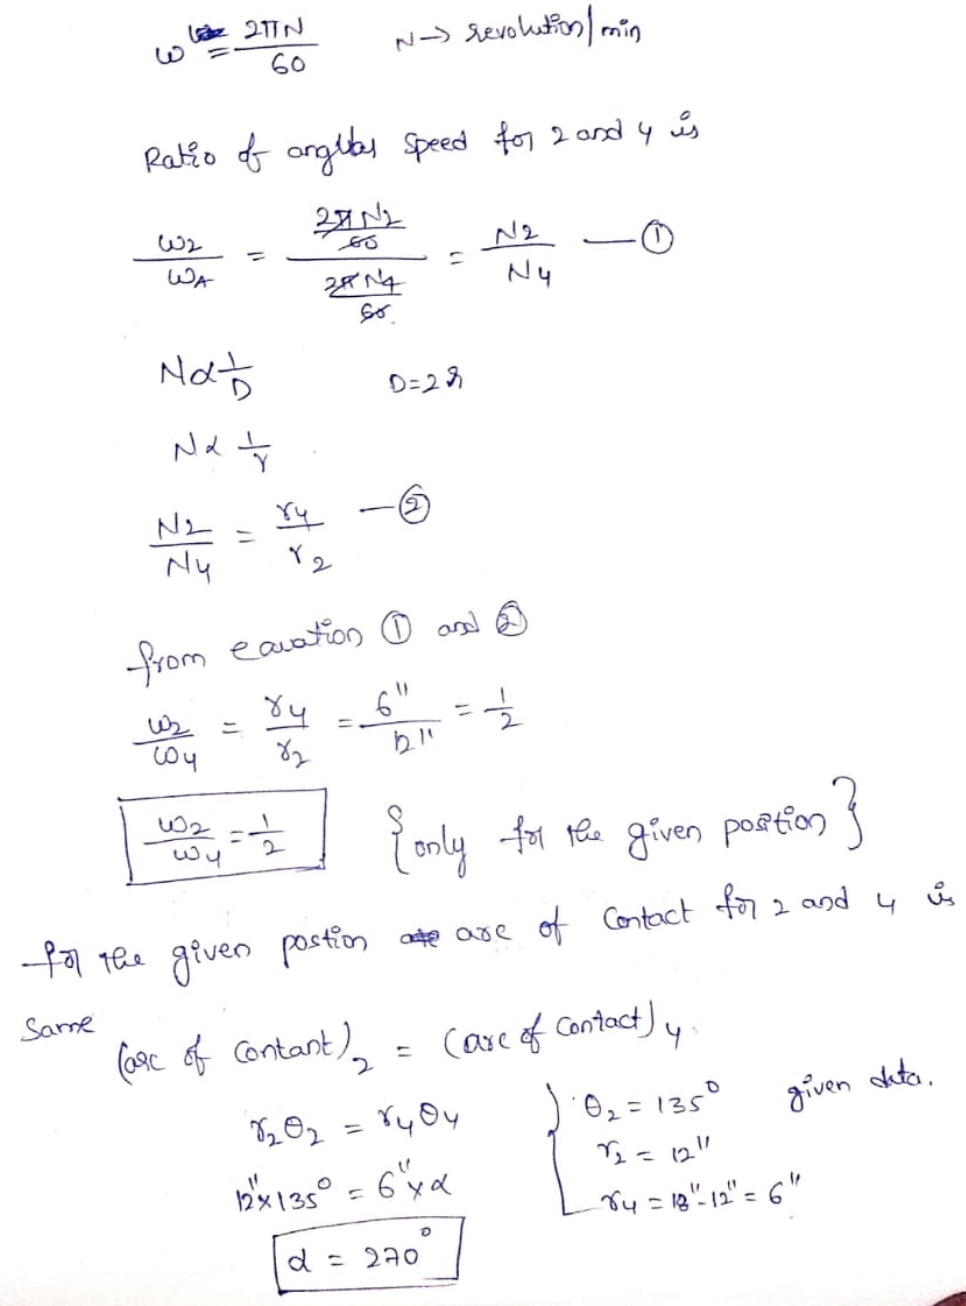 ω = 2πN/60 N→ revolution/min
Ratio of angular speed for 2 and 4 is
ω2/ωA = (2πN2/60)/(2πN4/60) = N2/N4 —①
N∝1/D D=2r
N∝1/r
N2/N4 = r4/r2 —②
from eauation ① and ②
ω2/ω4 = r4/r2 = 6"/12" = 1/2
ω2/ω4 = 1/2 {only for the given position}
for the given postion arc of Contact for 2 and 4 is
Same
(arc of Contant)2 = (arc of Contact)4
r2θ2 = r4θ4 θ2 = 135° given data.
r2 = 12"
12"×135° = 6"×α r4 = 18"-12" = 6"
α = 270°